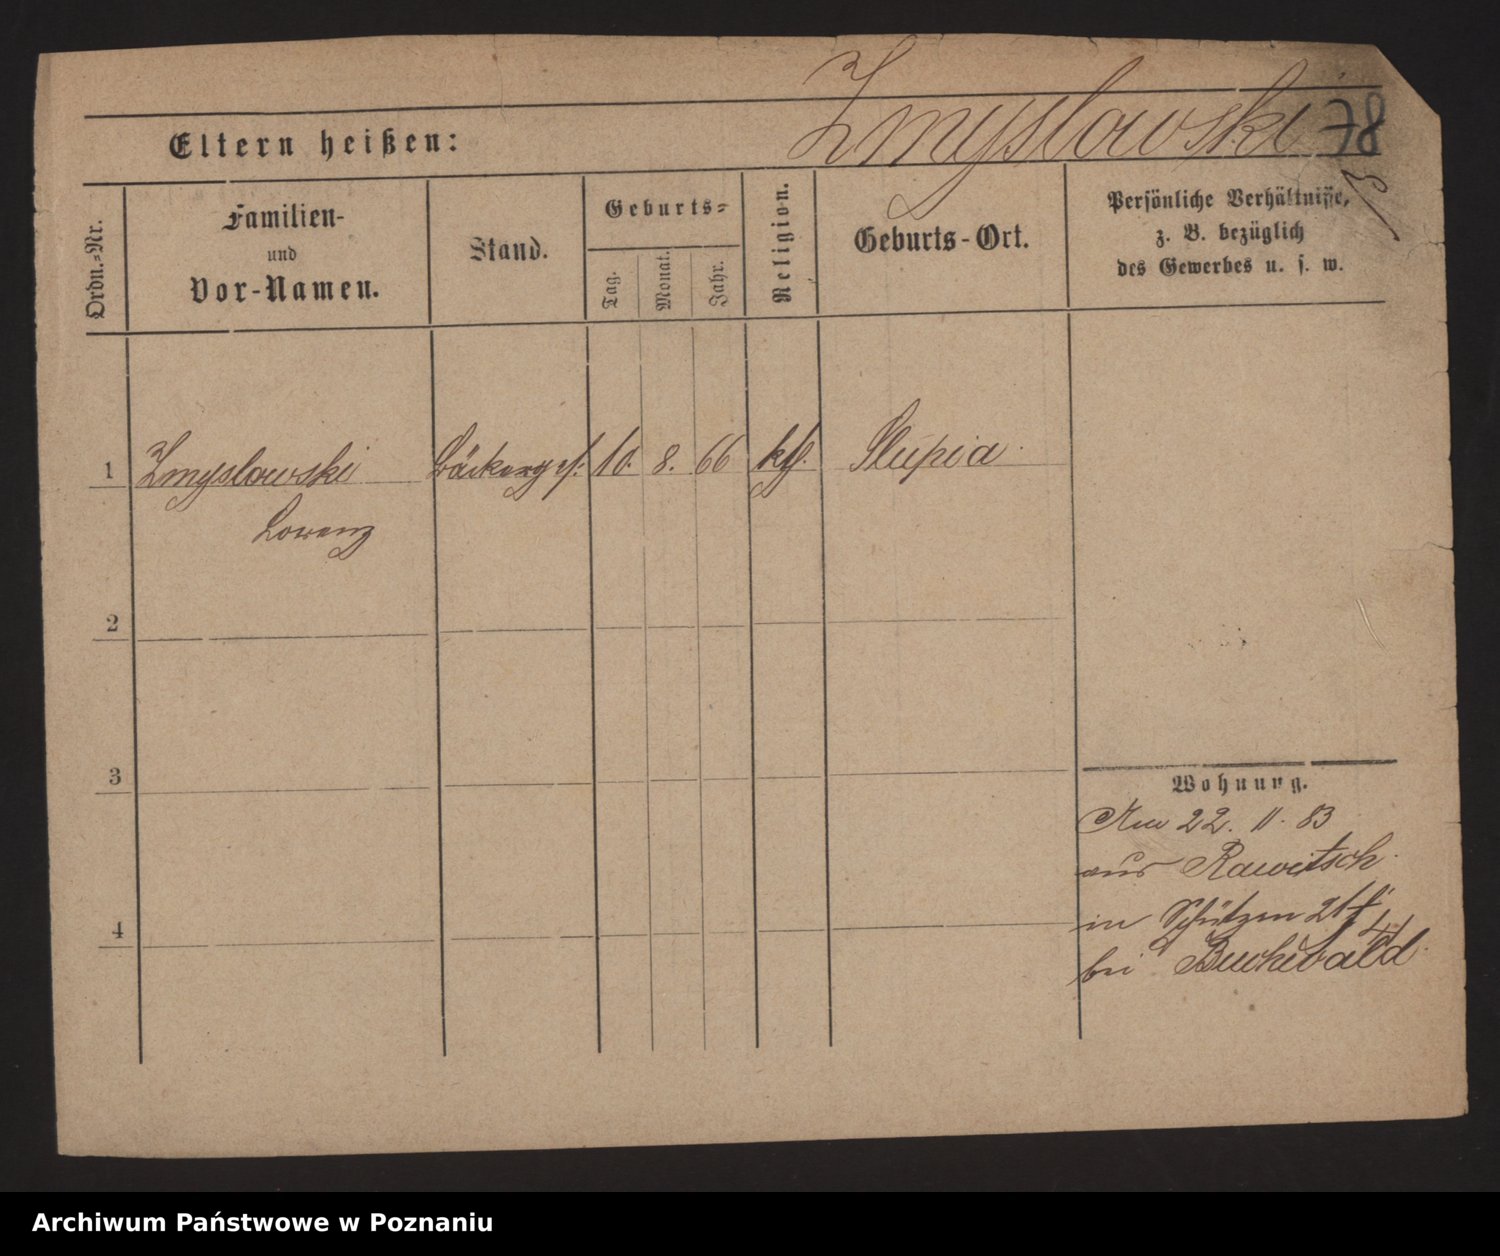 Zmyslowski 78
Eltern heißen:
Ordn.-Nr.
Familien-
und
Vor-Namen.
Stand.
Geburts-
Tag.
Monat.
Jahr.
Religion.
Geburts-Ort.
Persönliche Verhältniße,
z. B. bezüglich
des Gewerbes u. s. w.
1 Zmyslowski Bäckergs. 10. 8. 66 kth. Slupia
Lorenz
2
3
4
Wohnung.
Am 22. 11. 83
aus Rawitsch
in Schützen
bei Buchwald
Archiwum Państwowe w Poznaniu